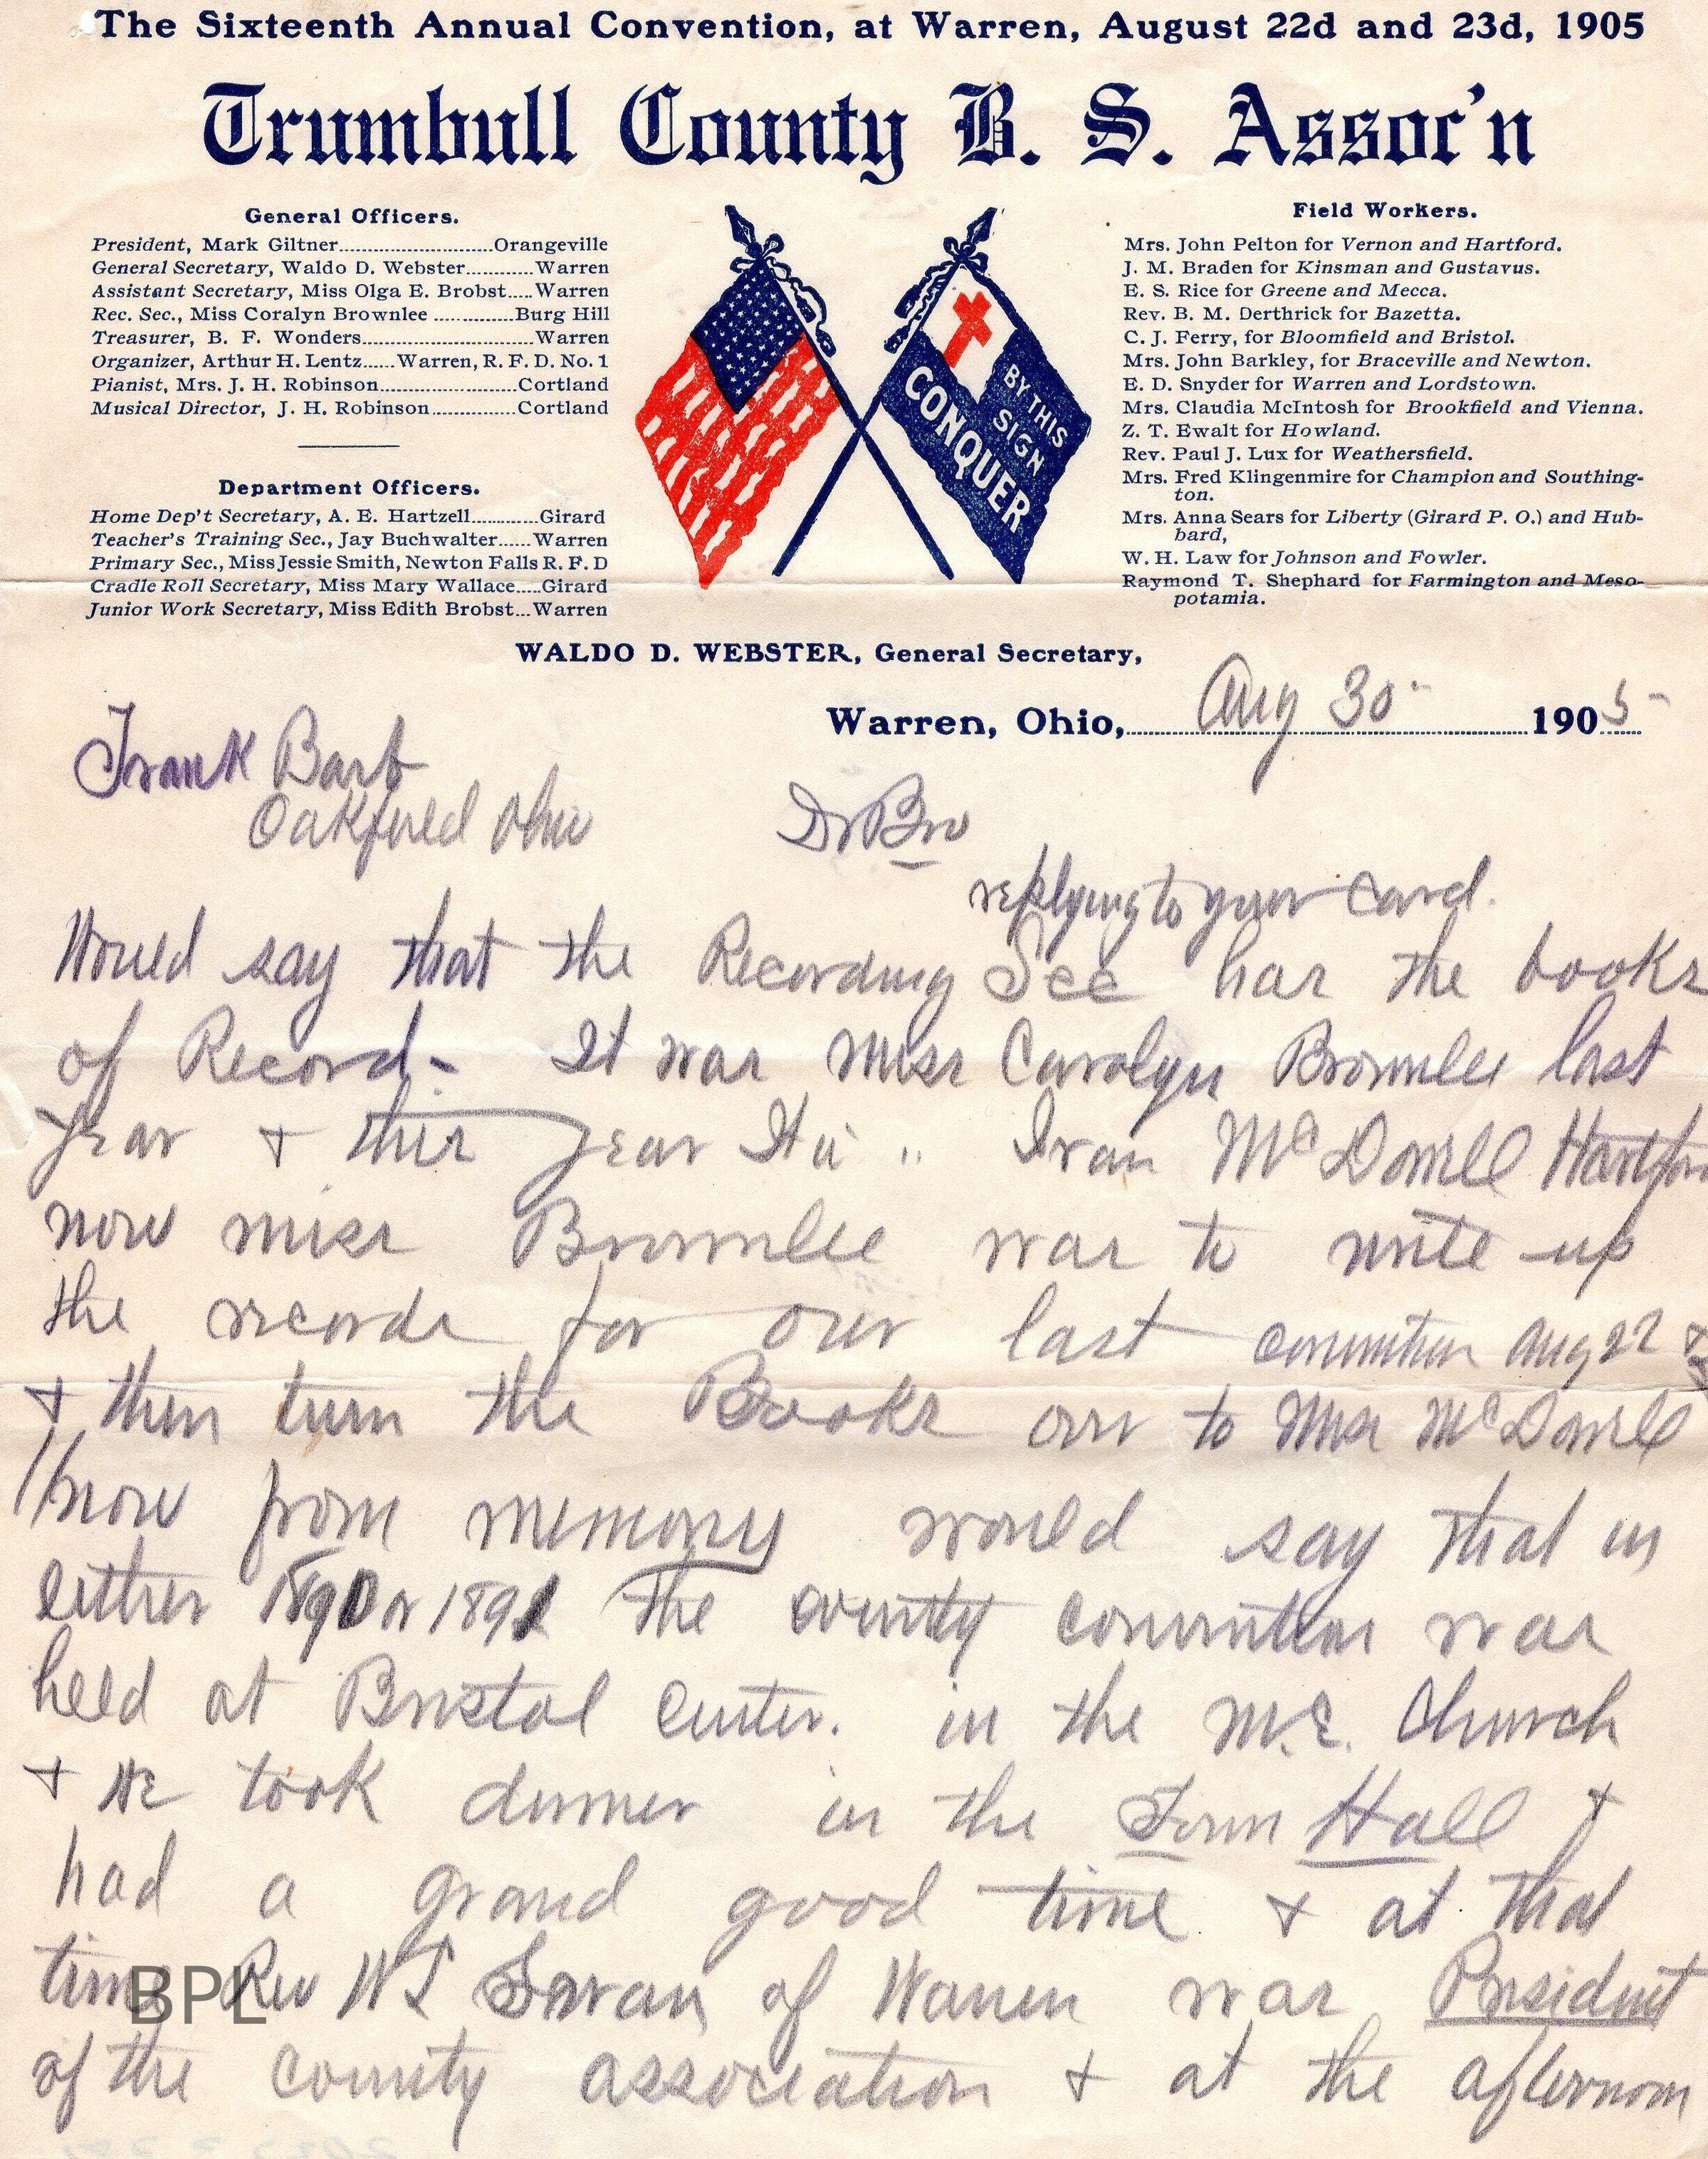 The Sixteenth Annual Convention, at Warren, August 22d and 23d, 1905
Trumbull County B. S. Assoc'n
General Officers.
President, Mark Giltner..........Orangeville
General Secretary, Waldo D. Webster..........Warren
Assistant Secretary, Miss Olga E. Brobst.....Warren
Rec. Sec., Miss Coralyn Brownlee ..........Burg Hill
Treasurer, B. F. Wonders..........Warren
Organizer, Arthur H. Lentz......Warren, R. F. D. No. 1
Pianist, Mrs. J. H. Robinson..........Cortland
Musical Director, J. H. Robinson..........Cortland
Department Officers.
Home Dep't Secretary, A. E. Hartzell..........Girard
Teacher's Training Sec., Jay Buchwalter......Warren
Primary Sec., Miss Jessie Smith, Newton Falls R. F. D
Cradle Roll Secretary, Miss Mary Wallace.....Girard
Junior Work Secretary, Miss Edith Brobst...Warren
BY THIS
SIGN
CONQUER
Field Workers.
Mrs. John Pelton for Vernon and Hartford.
J. M. Braden for Kinsman and Gustavus.
E. S. Rice for Greene and Mecca.
Rev. B. M. Derthrick for Bazetta.
C. J. Ferry, for Bloomfield and Bristol.
Mrs. John Barkley, for Braceville and Newton.
E. D. Snyder for Warren and Lordstown.
Mrs. Claudia McIntosh for Brookfield and Vienna.
Z. T. Ewalt for Howland.
Rev. Paul J. Lux for Weathersfield.
Mrs. Fred Klingenmire for Champion and Southing-
ton.
Mrs. Anna Sears for Liberty (Girard P. O.) and Hub-
bard,
W. H. Law for Johnson and Fowler.
Raymond T. Shephard for Farmington and Meso-
potamia.
WALDO D. WEBSTER, General Secretary,
Warren, Ohio, Aug 30 1905
Frank Barb
Oakfield Ohio
Dr Bro
replying to your card.
Would say that the Recording Sec has the books
of Record - It was Miss Carolyn Brownlee last
year & this year It is " Ivan McDowell Hartford
now miss Brownlee was to write up
the records for our last convention Aug 22 &
& then turn the Books over to Miss McDowell
now from memory would say that in
either 1890 or 1891 the county convention was
held at Bristol Center. in the M.E. Church
& we took dinner in the Town Hall &
had a grand good time & at that
time Rev W S Swan of Warren was President
of the county association & at the afternoon
BPL